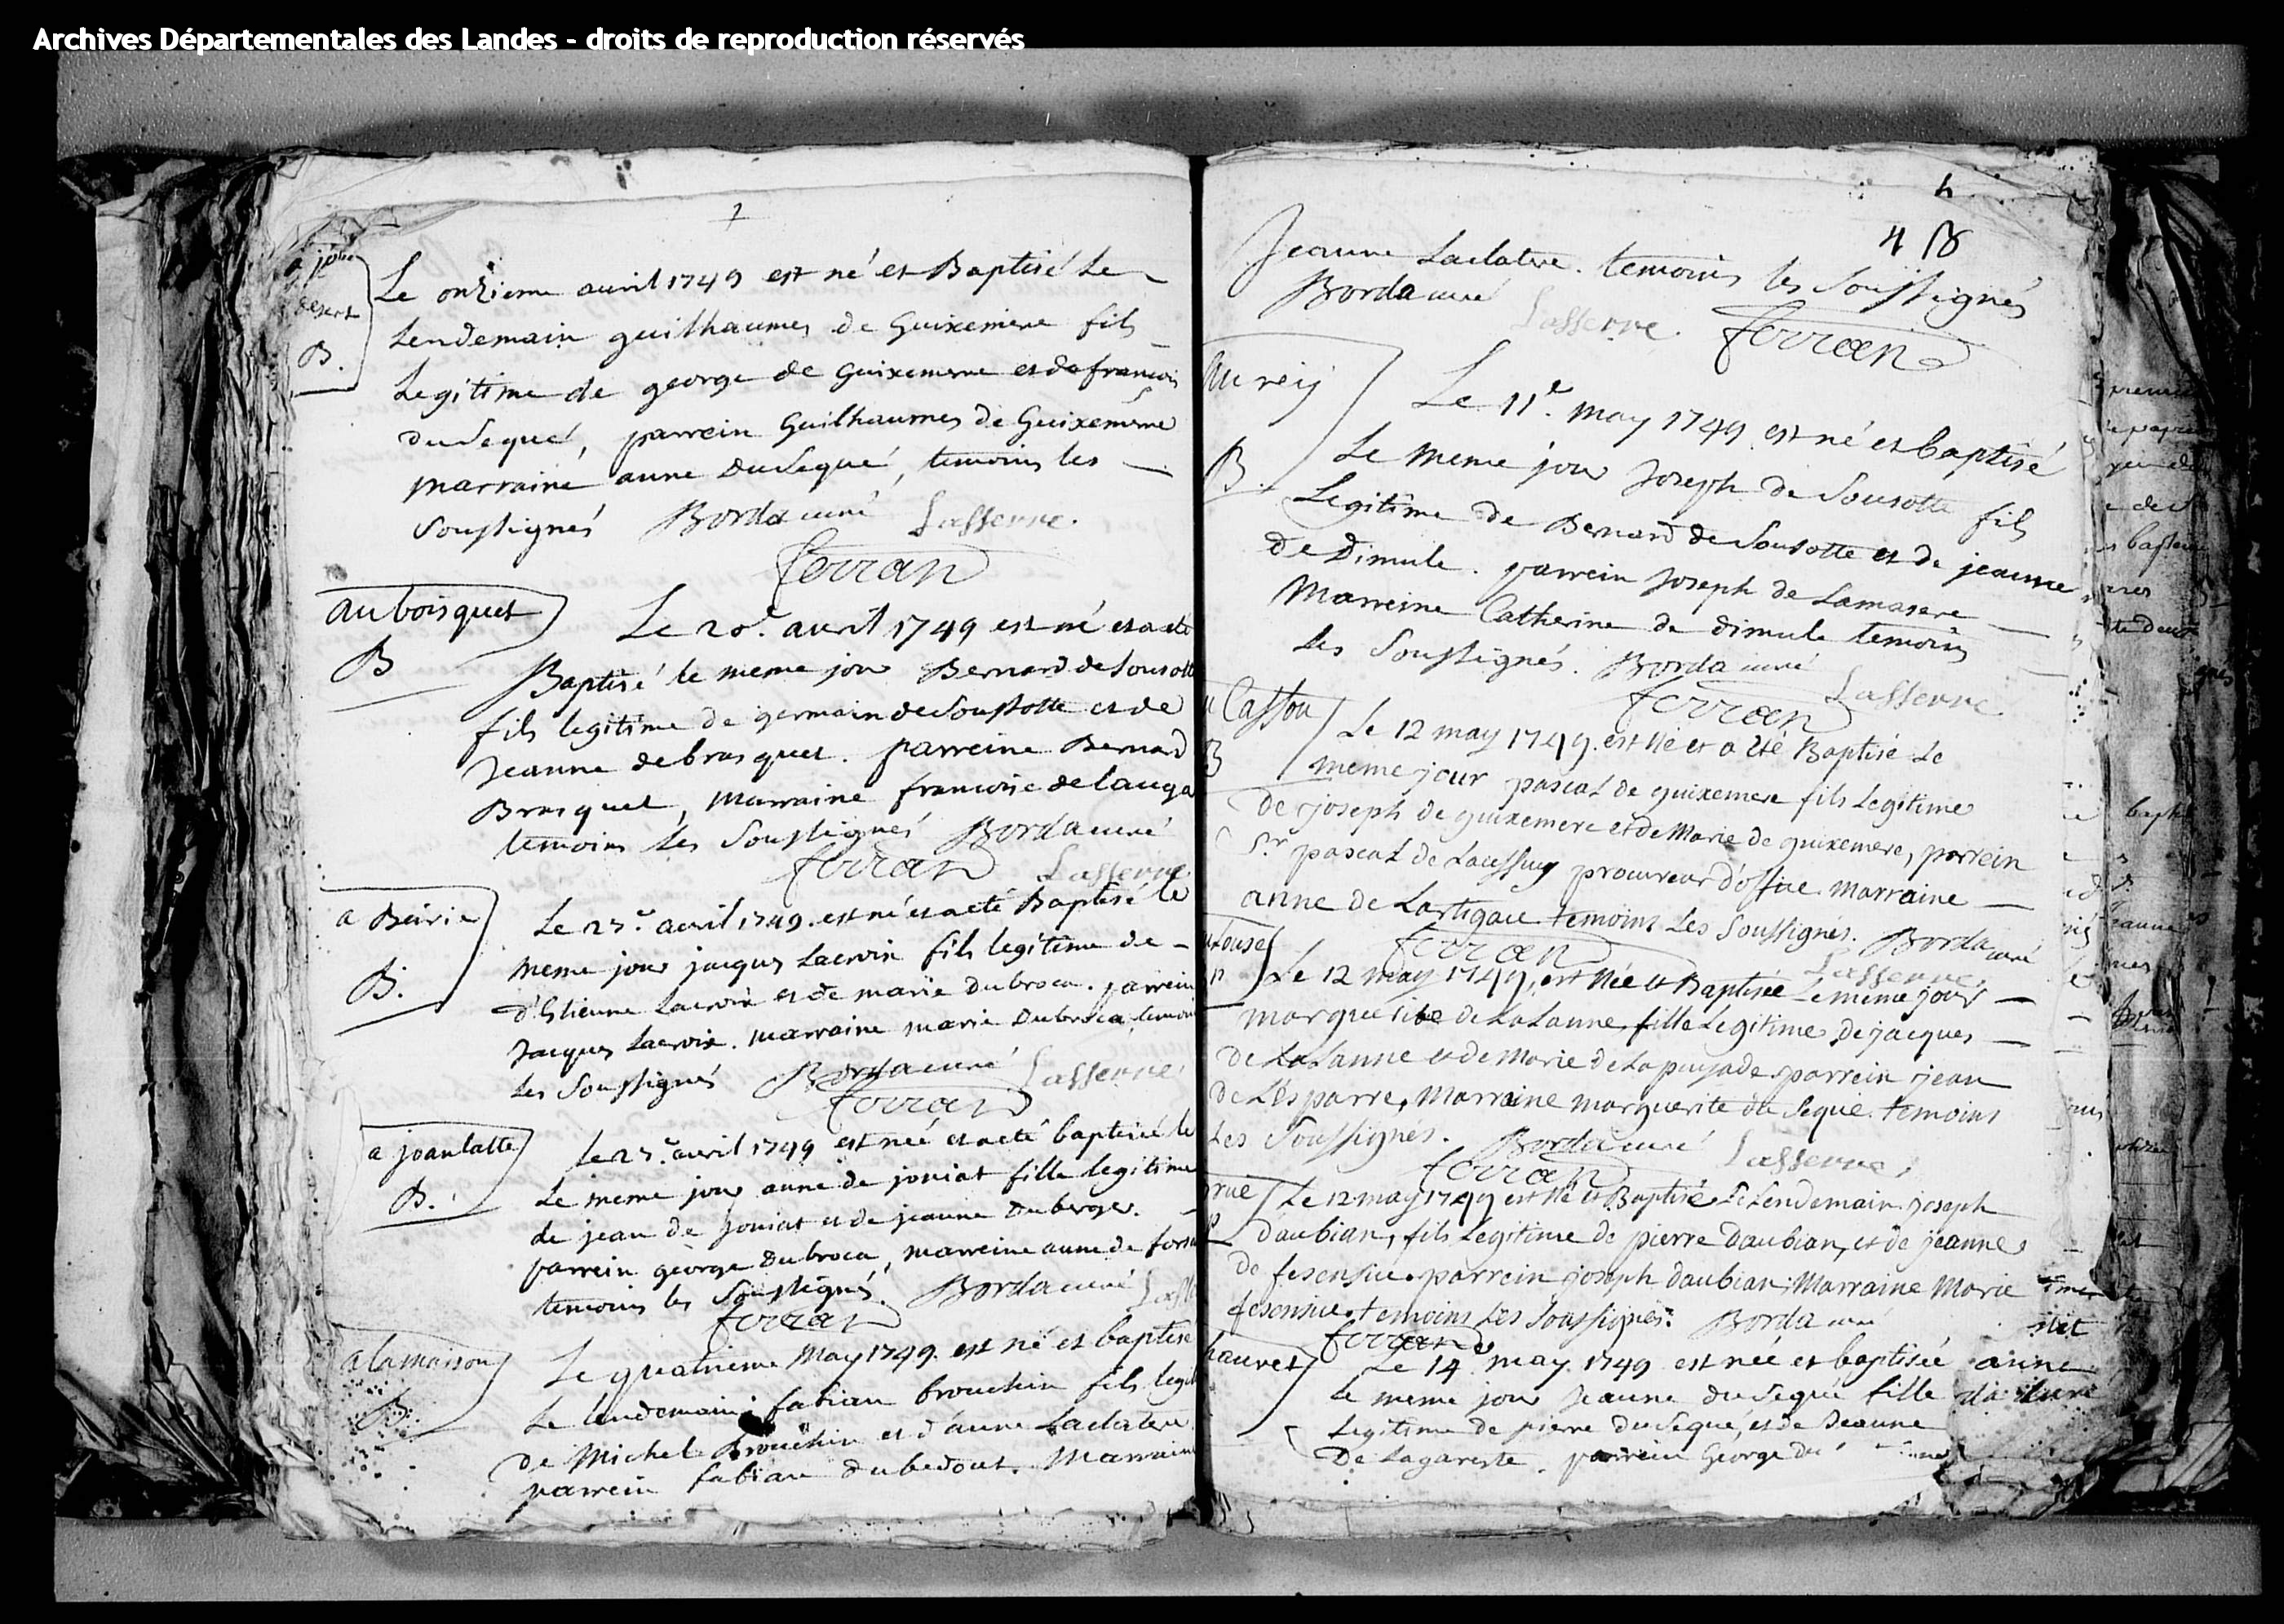 Archives Départementales des Landes - droits de reproduction réservés
B.
Le onzieme auril 1749 est né et Baptisé Le
Lendemain guilhaumes de Guixemere fils
Legitime de george de Guixemere et de francois
duSequé, parrein Guilhaumes de Guixemere
marraine anne DuSequé, temoins les
Soussignés Borda curé Lasserre.
ferran
au boisquet
B
Le 20e. avril 1749 est né et a eté
Baptisé le meme jour Bernard de Sousotte
fils legitime de germain de Soussotte et de
Jeanne debrasquet. parreine Bernard
Brasquet, Marraine francoise de lauga
temoins les Soussignés Borda curé
ferran Lasserre
a Beirie
B.
Le 23e. avril 1749. est né et a eté Baptisé le
meme jour jacques Lacroix fils legitime de
d'Etienne Lacroix et de marie Dubroca. parrein
Jacques Lacroix. marraine marie Dubroca, temoins
les Soussignés Borda curé Lasserre.
ferran
a joanlatte
B.
Le 23e. avril 1749 est née et a eté baptisée le
Le meme jour anne de joniat fille legitime
de jean de joniat et de jeanne Duberger.
parrein george Dubroca, marreine anne de
temoins les Soussignés. Borda curé
ferran
a lamaison
B
Le quatrieme May 1749. est né et baptisé
Le lendemain fabian brouchin fils legit
de Michel Brouchin et d'anne Laclatere
parrein fabian dubedout. Marraine
4
48
Jeanne Laclatere. temoins les Soussignés
Borda curé Lasserre. ferran
B.
Le 11e. may 1749 est né et baptisé
Le meme jour Joseph de Sousotte fils
Legitime de Bernard de Sousotte et de jeanne
de Dimule. parrein Joseph de Lamasere
Marreine Catherine de Dimule temoins
les Soussignés. Borda curé Lasserre
ferran
Cassou
B
Le 12 may 1749. est Né et a eté Baptisé Le
meme jour pascal de guixemere fils Legitime
de joseph de guixemere et de Marie de guixemere, parrein
Sr pascal de Laussuy procureur d'office marraine
anne de Lartigau temoins Les Soussignés. Borda curé
ferran Lasserre.
Le 12 may 1749, est Née et Baptisée Le meme jour
marguerite de LaLanne, fille Legitime, de jacques
de LaLanne et de Marie de Lapuyade parrein jean
de L'Esparre, Marraine marguerite du Sequé. temoins
Les Soussignés. Borda curé Lasserre,
ferran
Le 12 may 1749 est Né et Baptisé Le Lendemain joseph
Daubian, fils Legitime de pierre Daubian, et de jeanne
de fesensieu. parrein joseph daubian; Marraine Marie
fesensieu. temoins Les Soussignés. Borda curé
ferran
Le 14 may 1749 est née et baptisée
Le meme jour Jeanne du Sequé fille
Legitime de pierre Du Sequé, et de Jeanne
De Lagareste. parrein George du
anne